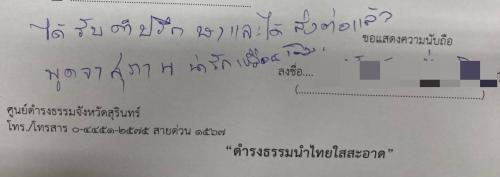 ได้รับคำปรึกษาและได้ส่งต่อแล้ว
ขอแสดงความนับถือ
พูดจาสุภาพ น่ารัก
ลงชื่อ....
(........................................)
ศูนย์ดำรงธรรมจังหวัดสุรินทร์
โทร./โทรสาร ๐-๔๔๕๑-๒๕๗๕ สายด่วน ๑๕๖๗
"ดำรงธรรมนำไทยใสสะอาด"